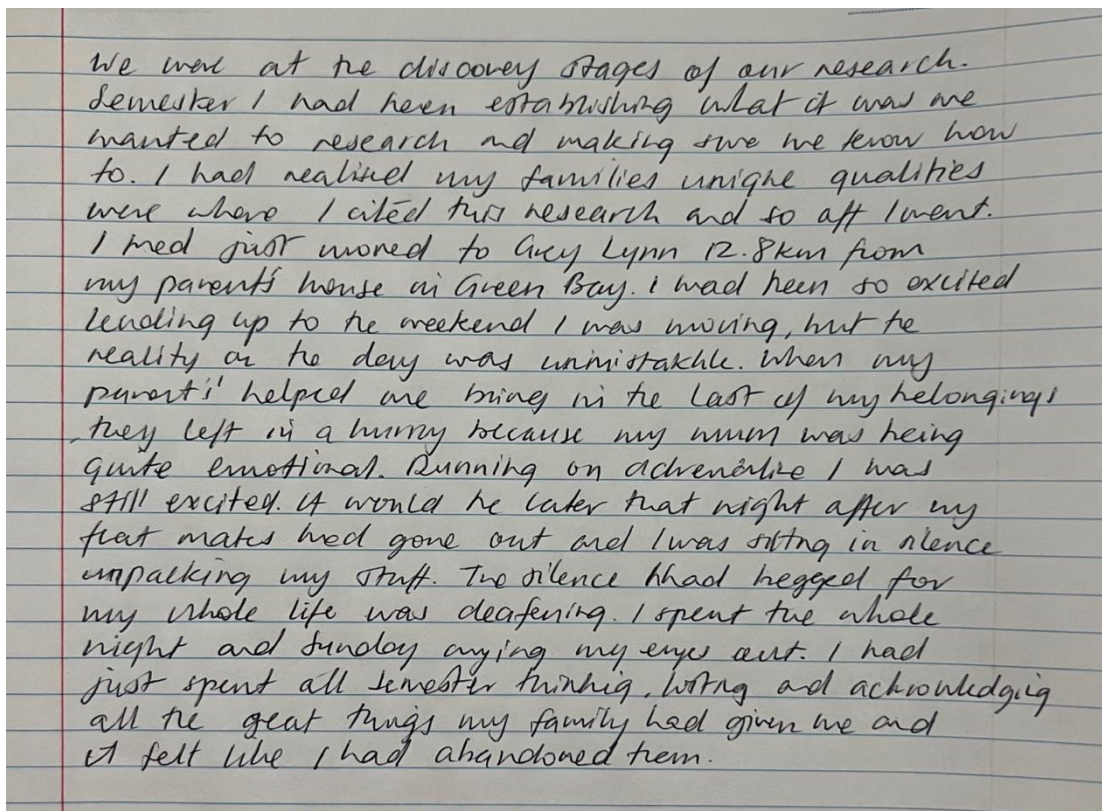 We were at the discovey stages of our research.
Semester 1 had been establishing what it was we
wanted to research and making sure we know how
to. I had realised my families unique qualities
were where I cited this research and so off I went.
I had just moved to Grey Lynn 12.8km from
my parent's house in Green Bay. I had been so excited
leading up to the weekend I was moving, but the
reality on the day was unmistakble. When my
parent's' helped me bring in the last of my belongings
, they left in a hurry because my mum was being
quite emotional. Running on adrenaline I was
still excited. It would be later that night after my
flat mates had gone out and I was sitting in silence
unpacking my stuff. The silence I had begged for
my whole life was deafening. I spent the whole
night and Sunday crying my eyes out. I had
just spent all semester thinking, writing and acknowledging
all the great things my family had given me and
it felt like I had abandoned them.